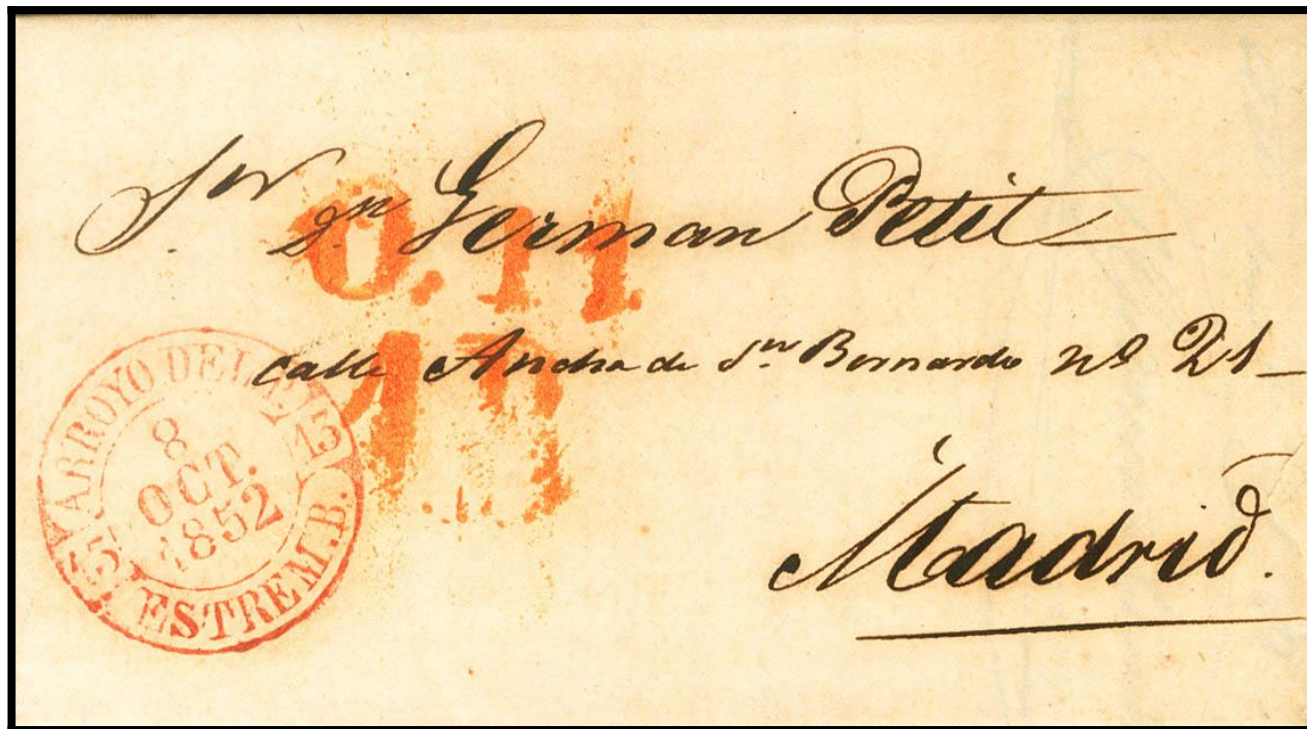 Sor. Dn German Petit
calle Ancha de Sn. Bernardo nº 21
Madrid.
ARROYO DEL
15
8
OCT.
1852
15
ESTREM.B.